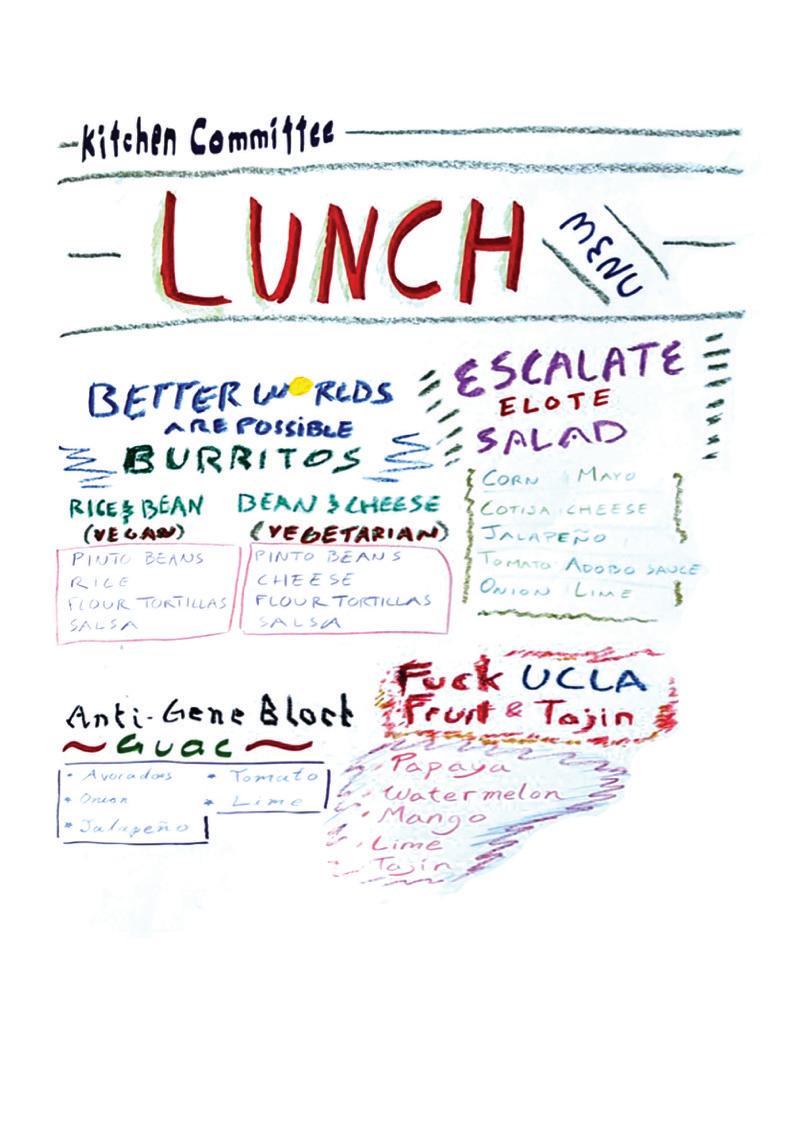 Kitchen Committee
LUNCH
MENU
BETTER WORLDS
ARE POSSIBLE
BURRITOS
RICE & BEAN
(VEGAN)
PINTO BEANS
RICE
FLOUR TORTILLAS
SALSA
BEAN & CHEESE
(VEGETARIAN)
PINTO BEANS
CHEESE
FLOUR TORTILLAS
SALSA
ESCALATE
ELOTE
SALAD
CORN MAYO
COTIJA CHEESE
JALAPEÑO
TOMATO ADOBO SAUCE
ONION LIME
Anti-Gene Block
~ Guac ~
• Avocados • Tomato
• Onion • Lime
• Jalapeño
Fuck UCLA
Fruit & Tajin
Papaya
Watermelon
Mango
Lime
Tajin